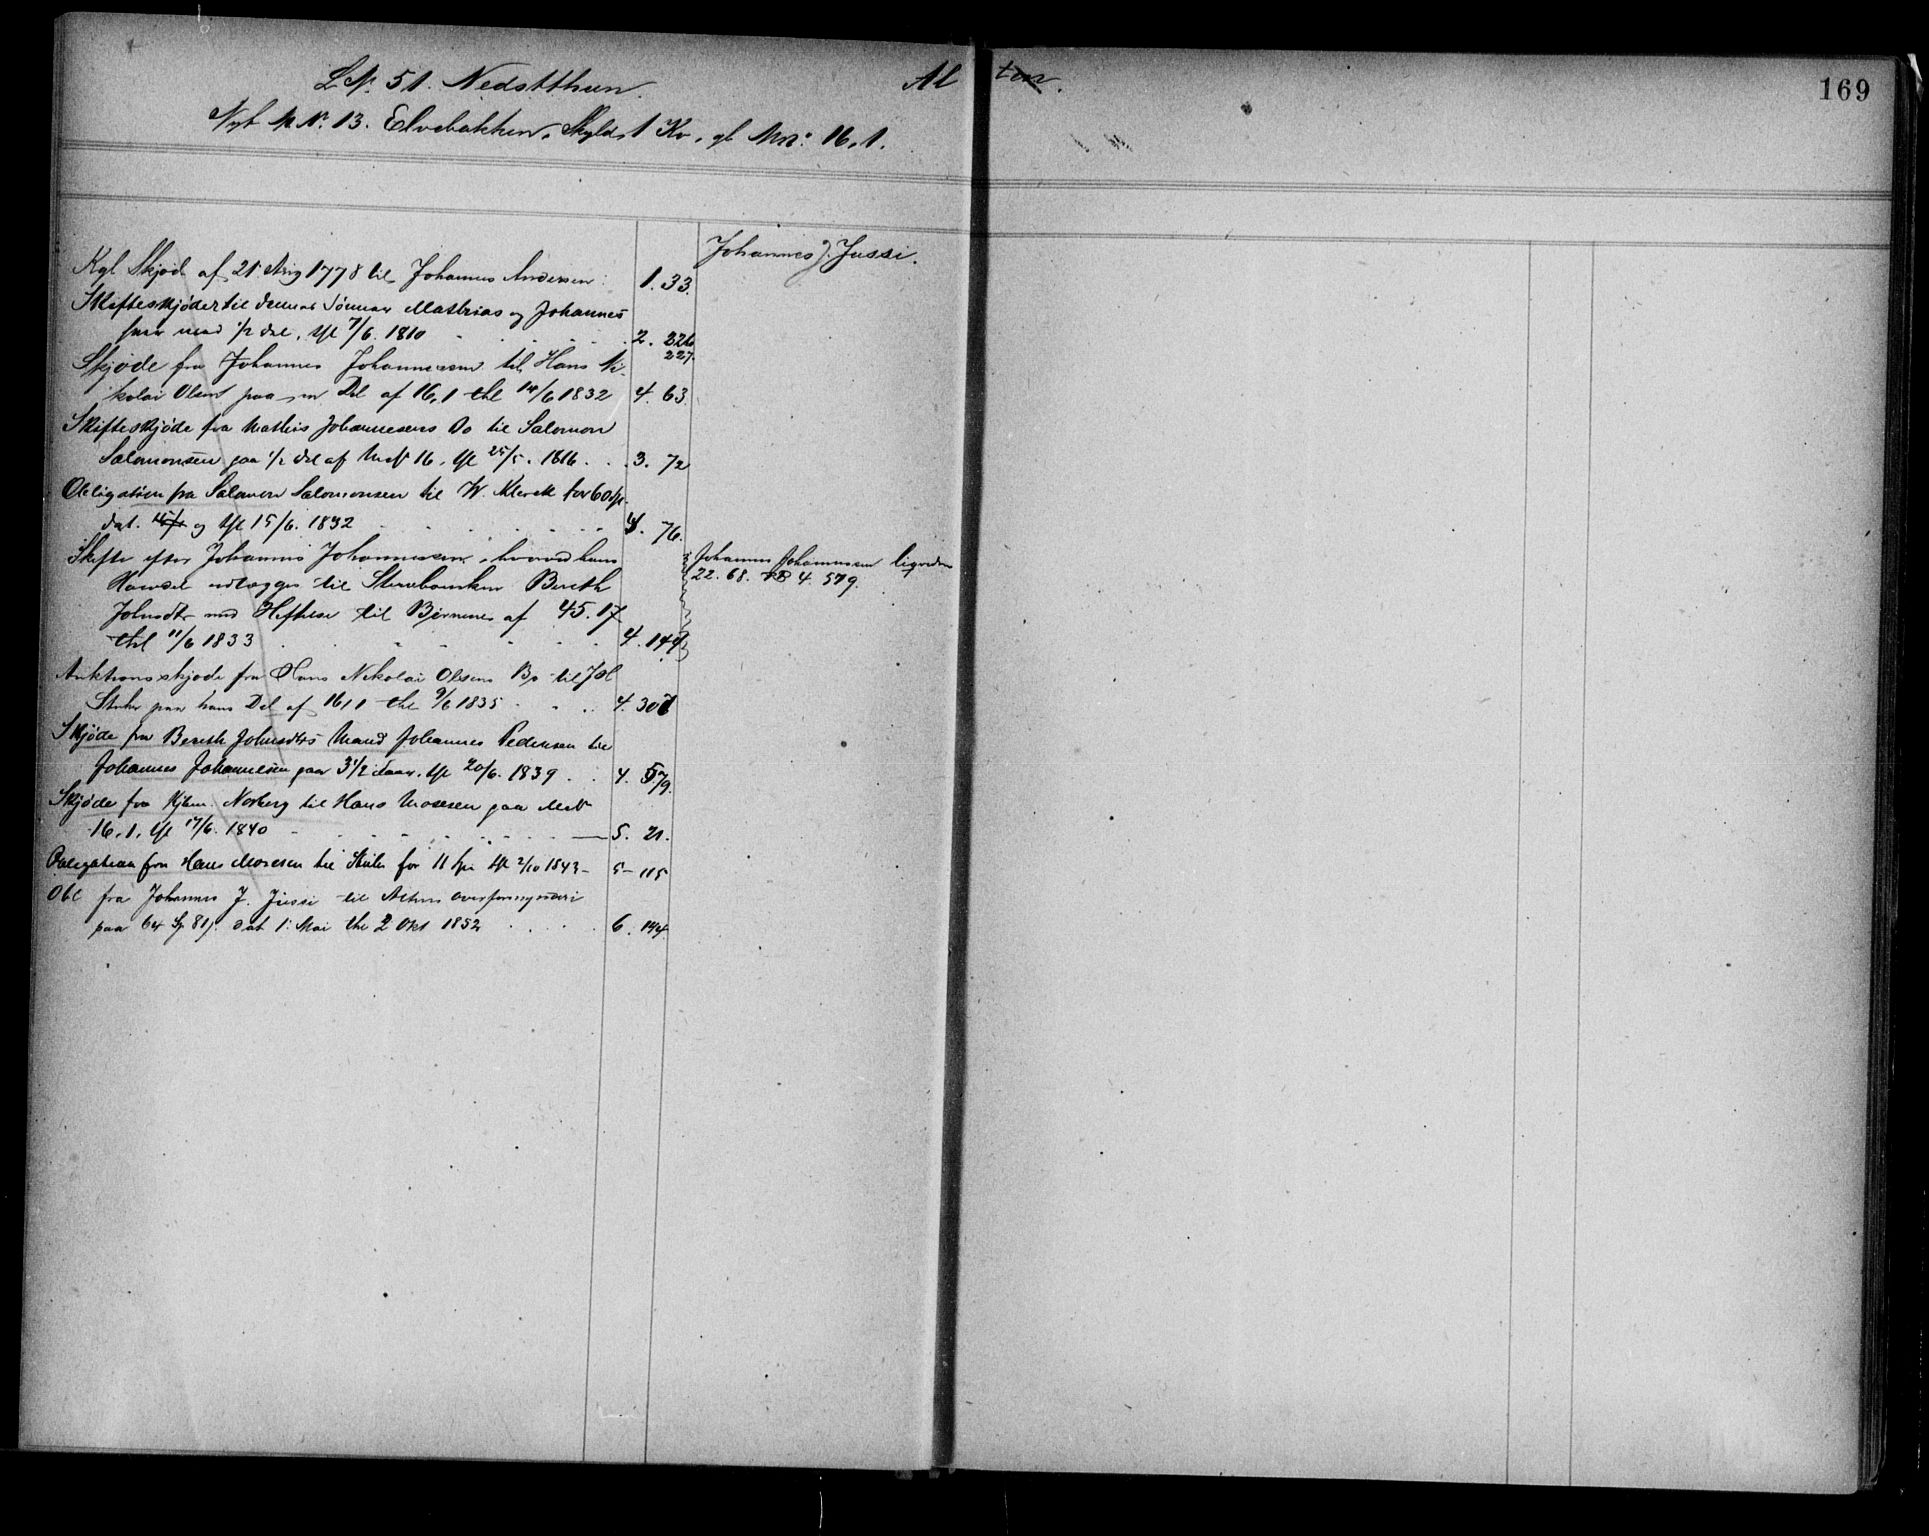 L.N. 51. Nedstthun. Al ten. 169
Nyt M N. 13. Elvebakken, Skyld 1 Kv, gl Mn: 16,1.
Johannes J. Jussi.
Kgl Skjöd af 21 Aug 1778 til Johannes Andersen 1. 33.
Skifteskjöder til dennes Sønner Mathias og Johannes
hver med 1/2 del, thl 7/6. 1810 2. 226
227.
Skjøde fra Johannes Johannessen til Hans Ni-
kolai Olsen paa en Del af 16,1 thl 14/6 1832 4. 63.
Skifteskjøde fra Mathis Johannesens Bo til Salomon
Salomonsen paa 1/2 del af MN 16, thl 25/5. 1816 3. 72
Obligation fra Salomon Salomonsen til W. Klerck for 60 Sp.
dat. og thl 15/6. 1832 4. 76.
Skifte efter Johannes Johannessen, hvorved hans
Johannes Johannessen
22. 68. PB 4. 579.
Havsel udlægges til Stervboenken Bereth
Johnsdtr med Heftelse til Børnene af 45. 17
thl 11/6 1833 4. 149
Auktionsskjøde fra Hans Nikolai Olsens Bo til
paa hans Del af 16,1 thl 9/6 1835 4. 307
Skjøde fra Bereth Johnsdtrs Mand Johannes Pedersen til
Johannes Johannesen paa thl 20/6. 1839 4. 579.
Skjøde fra Norberg til Hans Mosesen paa MN
16,1, thl 17/6. 1840 5. 21.
Obligation fra Hans Mosesen til for 11 Sp. thl 2/10 1843 5 - 115
Obl fra Johannes J. Jussi til Altens overformynderi
paa 64 Sp 81 dat 1 Mai thl 2 Okt 1852 6. 144.